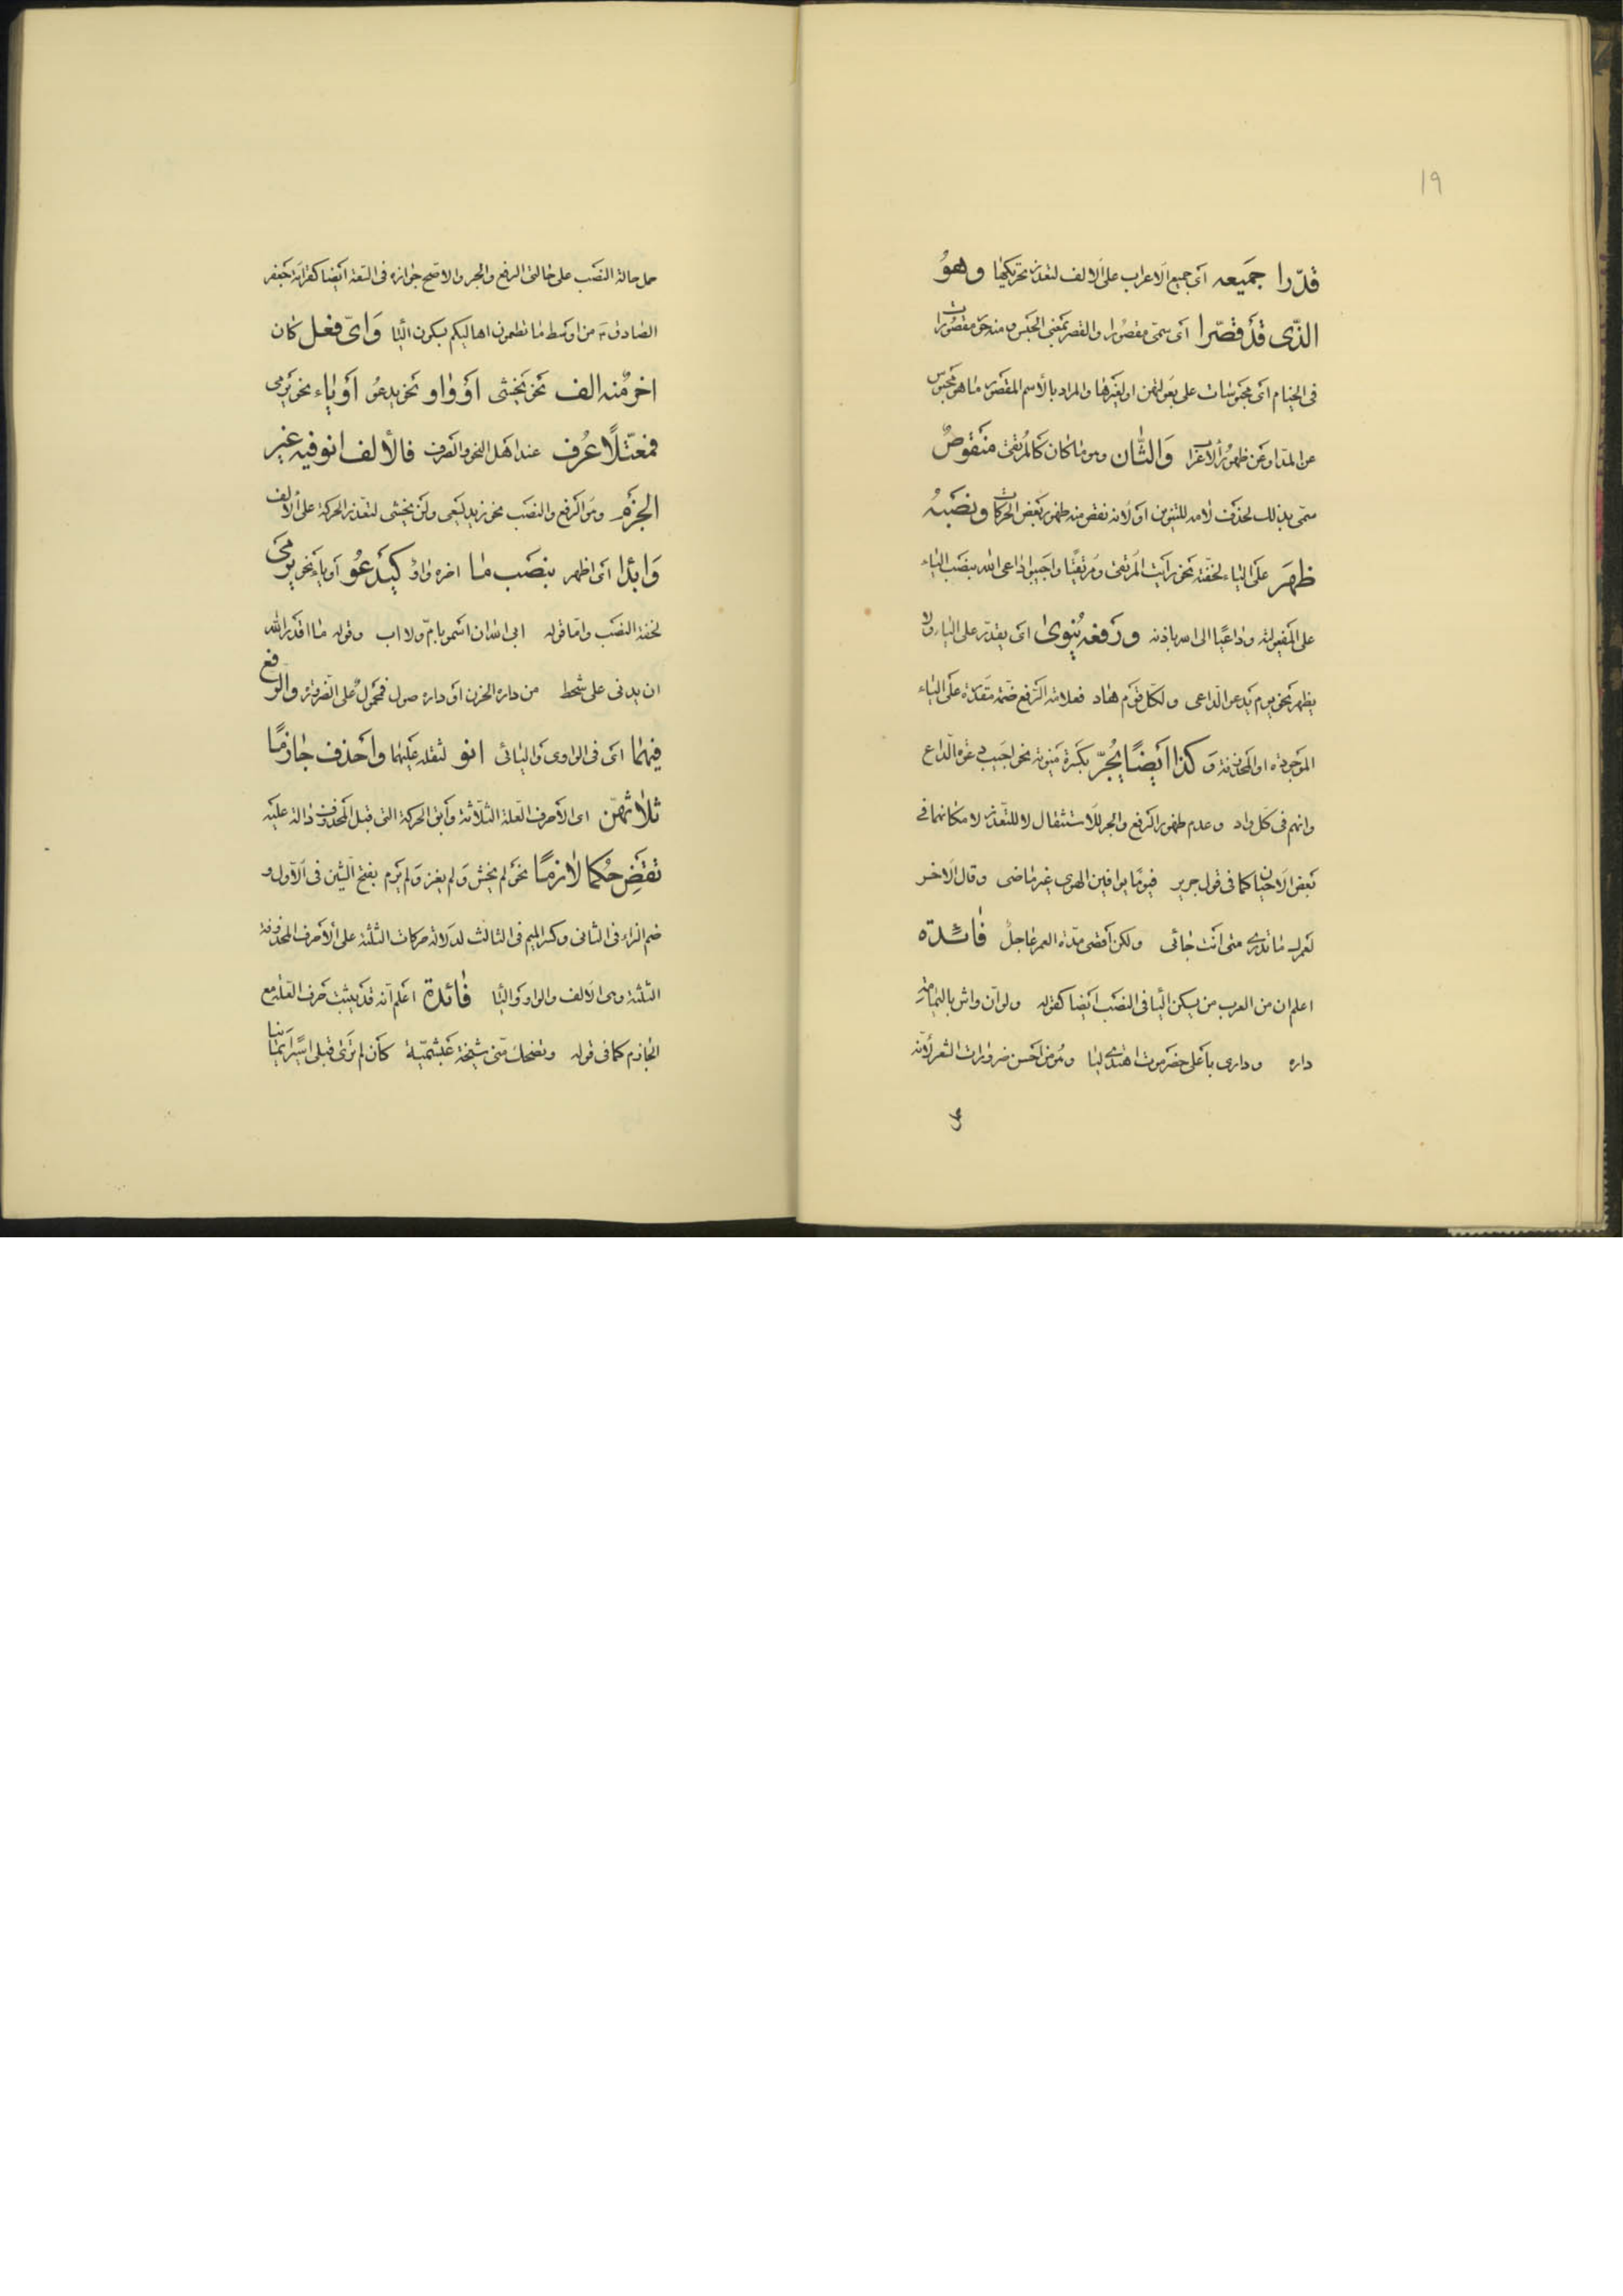 ١٩
قدّرا جميعه اى جميع الاعراب على الالف لتعذر تحريكها وهو
الذى قد قصرا اى سمى مقصورا والقصر بمعنى الحبس ومنه حور مقصورات
فى الخيام اى محبوسات على بعولتهن او لغيرها والمراد بالاسم المقصور ما هو محبوس
عن المد او عن ظهور الاعراب والثان وهو ما كان كالمرتقى منقوص
سمى بذلك لحذف لامه للتنوين او لانه نقص منه ظهور بعض الحركات ونصبه
ظهر على الياء لخفته نحو رايت المرتقى ومرتقيا واجيبوا داعى الله بنصب الياء
على المفعولية وداعيا الى الله باذنه ورفعه ينوى اى يقدر على الياء ولا
يظهر نحو يوم يدعو الداعى ولكل قوم هاد فعلامة الرفع ضمة مقدرة على الياء
الموجودة او المحذوفة وكذا ايضا يجرّ بكسرة منوية نحو اجيب دعوة الداع
وانهم فى كل واد وعدم ظهور الرفع والجر للاستثقال لا للتعذر لامكانهما فى
بعض الاحيان كما فى قول جرير فيوما يوافين الهوى غير ماضى وقال الاخر
لعمرك ما تدرى متى انت جائى ولكن اقصى مدة العمر عاجل فائدة
اعلم ان من العرب من يسكن اليا فى النصب ايضا كقوله ولو ان واش باليمامة
داره ودارى باعلى حضرموت اهتدى ليا وهو من احسن ضرورات الشعر لانه
حمل حالة النصب على حالتى الرفع والجر والاصح جوازه فى السعة ايضا كقراءة جعفر
الصادق من اوسط ما تطعمون اهاليكم بسكون اليا واىّ فعل كان
اخر منه الف نحو يخشى او واو نحو يدعو او ياء نحو يرمى
فمعتلا عرف عند اهل النحو والصرف فالألف انو فيه غير
الجزم وهو الرفع والنصب نحو زيد يسعى ولن يخشى لتعذر الحركة على الالف
وابد اى اظهر بنصب ما اخره واو كيدعو او ياء نحو يرمى
لخفة النصب واما قوله ابى الله ان اسمو بام ولا اب وقوله ما اقدر الله
ان يدنى على شحط من داره الحزن او داره صول فمحمول على الضرورة والرفع
فيهما اى فى الواوى واليائى انو لثقله عليهما واحذف جازما
ثلاثهن اى الاحرف العلة الثلاثة وابق الحركة التى قبل المحذوف دالة عليه
تقض حكما لازما نحو لم يخش ولم يغز ولم يرم بفتح الشين فى الاول و
ضم الزاء فى الثانى وكسر الميم فى الثالث لدلالة حركات الثلثة على الاحرف المحذوفة
الثلثة وهى الالف والواو واليا فائدة اعلم انه قد يثبت حرف العلة مع
الجازم كما فى قوله وتضحك منى شيخة عبشمية كأن لم ترى قبلى اسيرا يمانيا